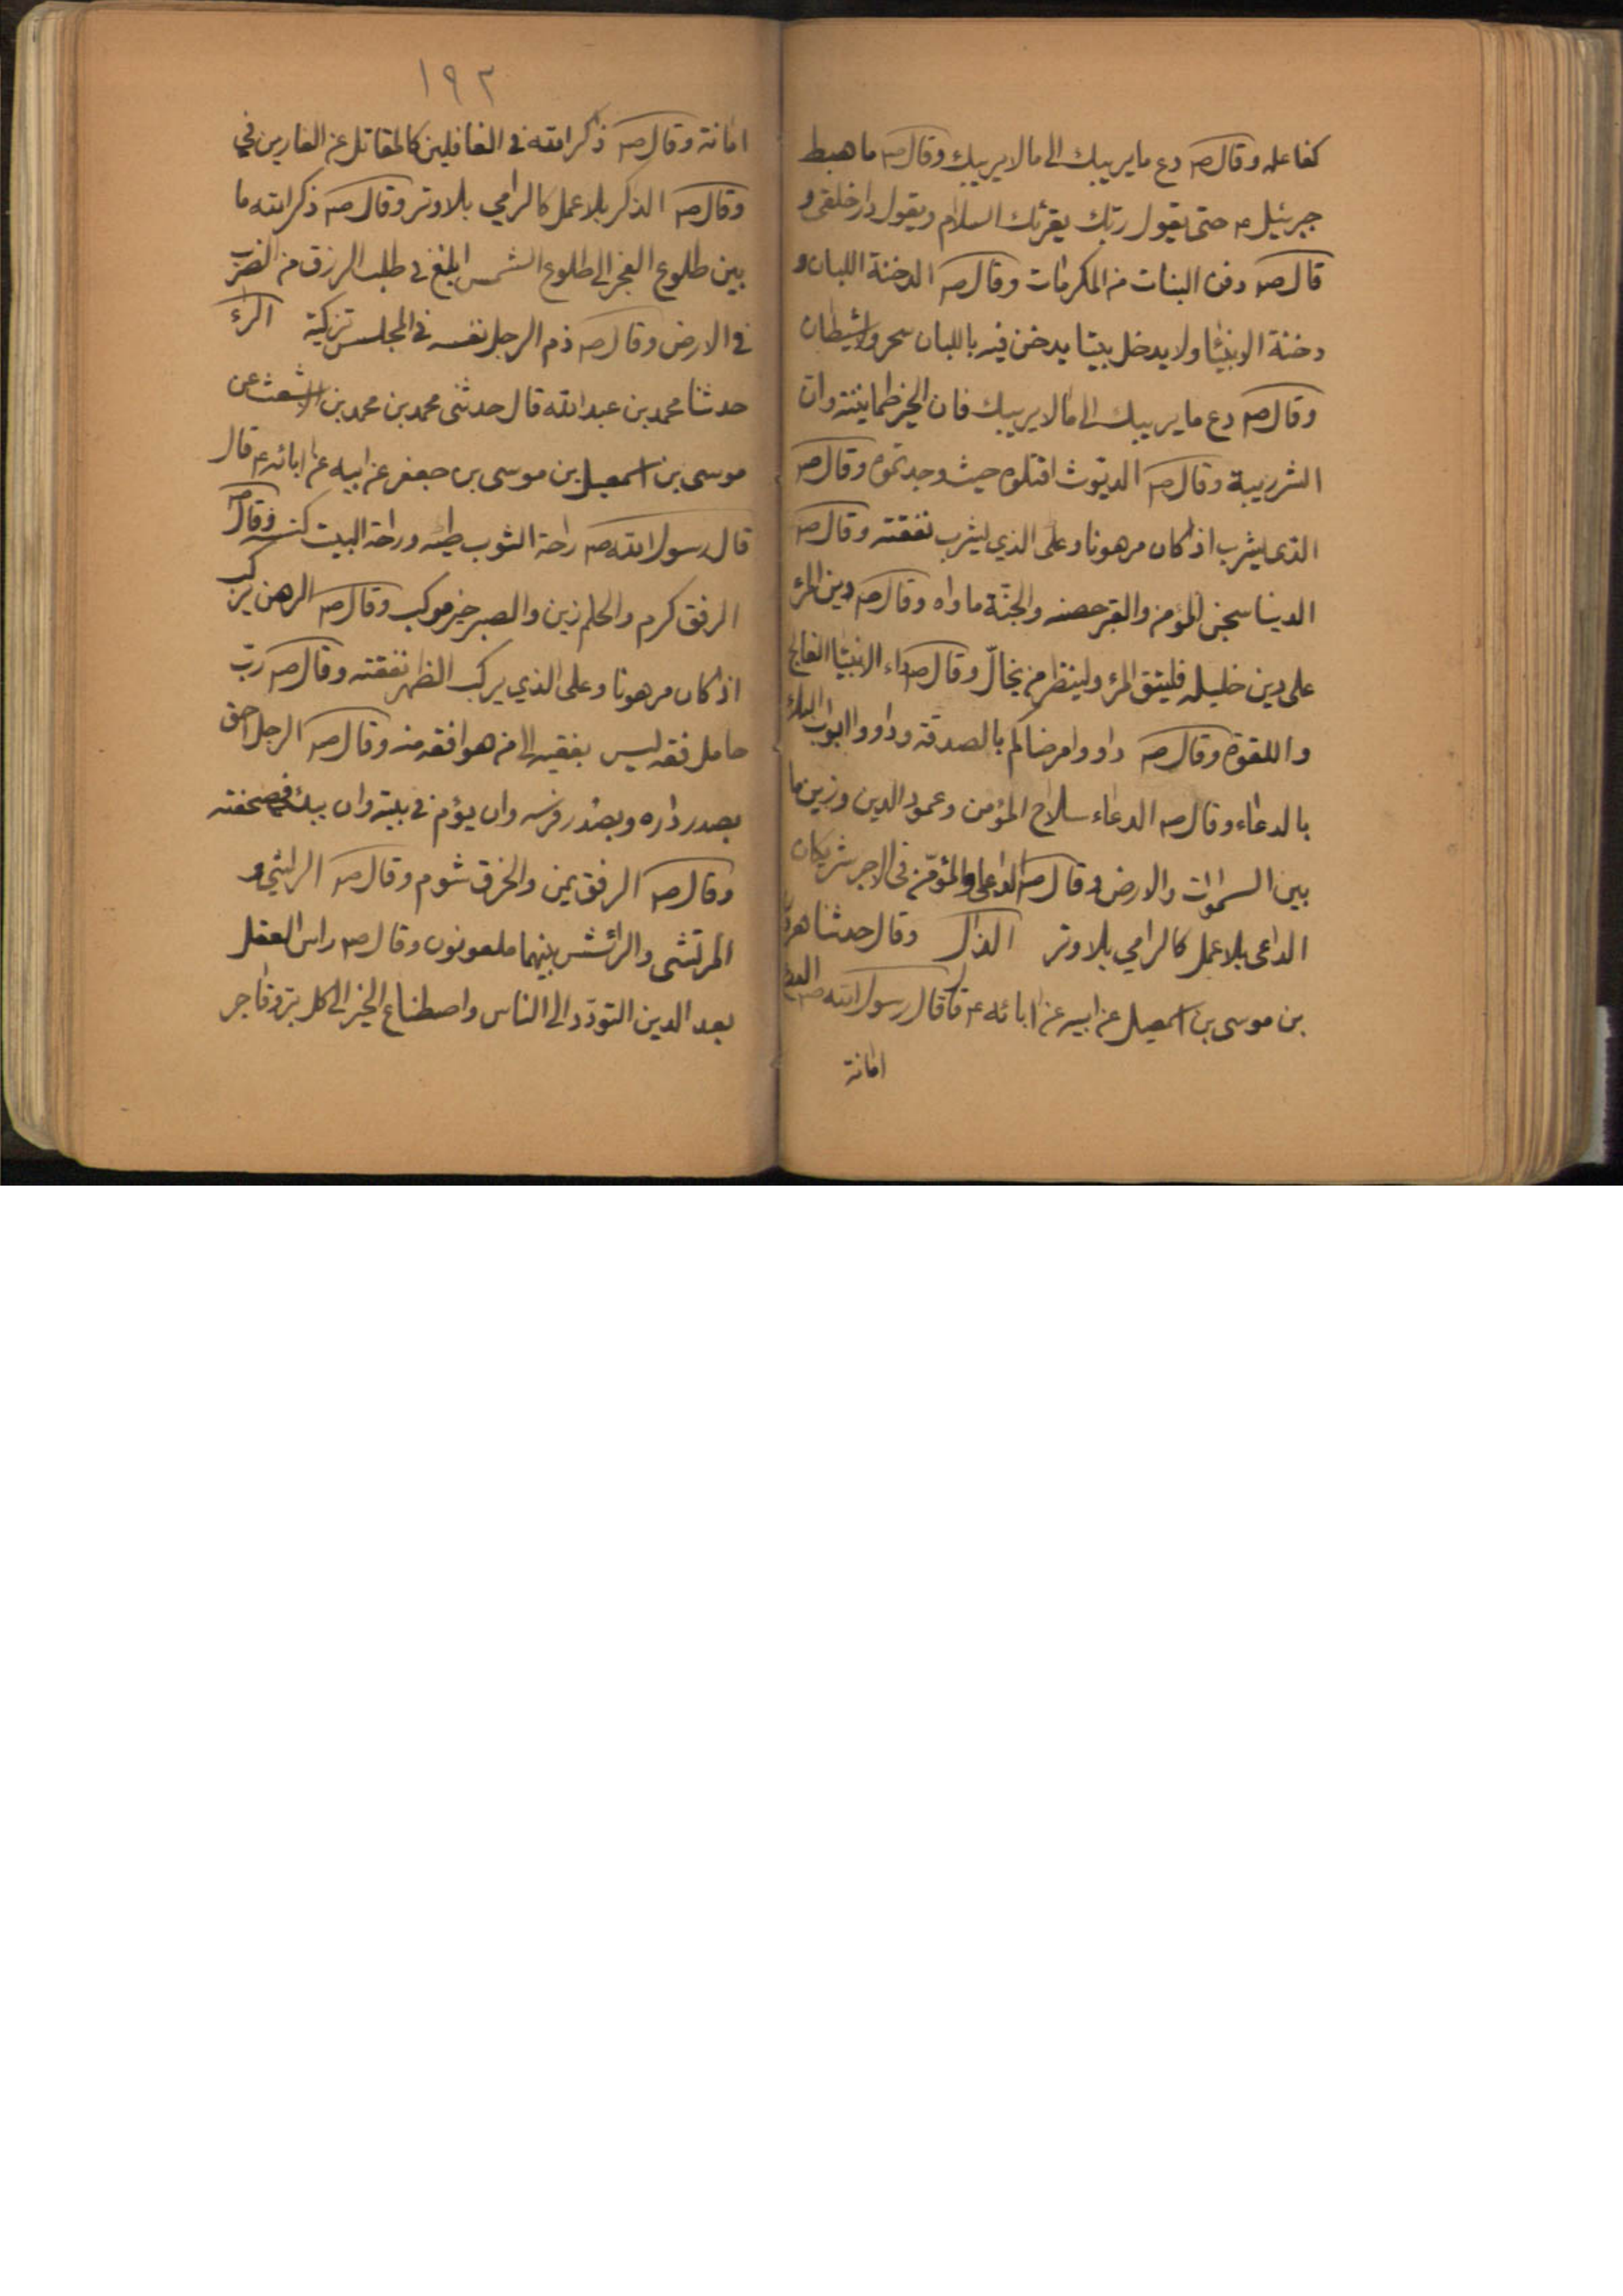 كفاعله وقال ص دع ما يريبك الى ما لا يريبك وقال ص ما هبط
جبرئيل ع حتى يقول ربك يقرئك السلام ويقول دار خلقى و
قال ص دفن البنات من المكرمات وقال ص الدخنة اللبان و
دخنة الانبياء ولا يدخل بيتا يدخن فيه باللبان سحر ولا شيطان
وقال ص دع ما يريبك الى ما لا يريبك فان الخير طمانينة وان
الشر ريبة وقال ص الديوث اقتلوه حيث وجدتموه وقال ص
الذى يشرب اذ كان مرهونا وعلى الذي يشرب نفقته وقال ص
الدنيا سجن المؤمن والقبر حصنه والجنة ماواه وقال ص دين المرء
على دين خليله فليتق المرء ولينظر من يخالّ وقال ص داء الانبياء الفالج
واللقوة وقال ص داووا مرضاكم بالصدقة وداووا ابواب البلاء
بالدعاء وقال ص الدعاء سلاح المؤمن وعمود الدين وزين ما
بين السموات والارض وقال ص الداعى والمؤمّن فى الاجر شريكان
الداعى بلا عمل كالرامي بلا وتر الذال وقال حدثنا
بن موسى بن اسمعيل عن ابيه عن ابائه ع قال قال رسول الله ص
امانة
١٩٢
امانة وقال ص ذاكر الله فى الغافلين كالمقاتل عن الفارين في
وقال ص الذكر بلا عمل كالرامي بلا وتر وقال ص ذكر الله ما
بين طلوع الفجر الى طلوع الشمس ابلغ فى طلب الرزق من الضرب
فى الارض وقال ص ذم الرجل نفسه فى المجلس تزكية الراء
حدثنا محمد بن عبد الله قال حدثنى محمد بن محمد بن الاشعث عن
موسى بن اسمعيل بن موسى بن جعفر عن ابيه عن ابائه ع قال
قال رسول الله ص راحة الثوب طيه وراحة البيت كنسه وقال ص
الرفق كرم والحلم زين والصبر خير موكب وقال ص الرهن يركب
اذ كان مرهونا وعلى الذي يركب الظهر نفقته وقال ص ربّ
حامل فقه ليس بفقيه الى من هو افقه منه وقال ص الرجل احق
بصدر داره وبصدر فرسه وان يؤم فى بيته وان يبدء فى صحفته
وقال ص الرفق يمن والخرق شوم وقال ص الراشي و
المرتشى والرائش بينهما ملعونون وقال ص راس العقل
بعد الدين التودّد الى الناس واصطناع الخير الى كل بر وفاجر